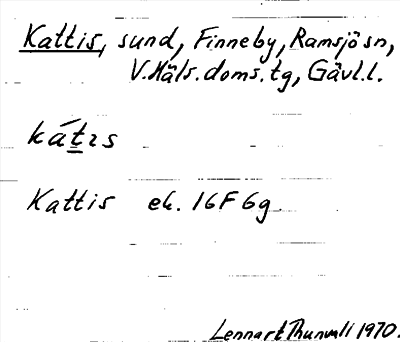 Kattis, sund, Finneby, Ramsjö sn,
V.Häls.doms.tg, Gävl.l.
kátıs
Kattis ek. 16F 6g
Lennart Thunvall 1970.